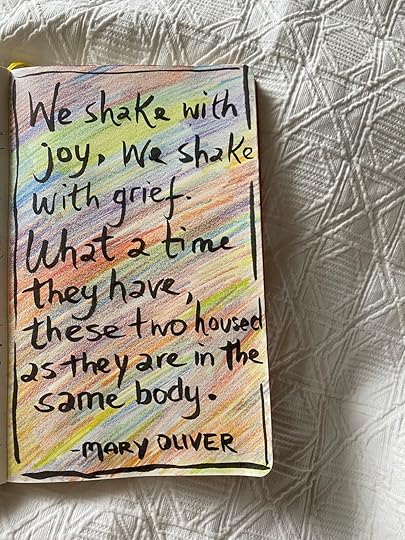 We shake with
joy, We shake
with grief.
What a time
they have,
these two housed
as they are in the
same body.
-MARY OLIVER